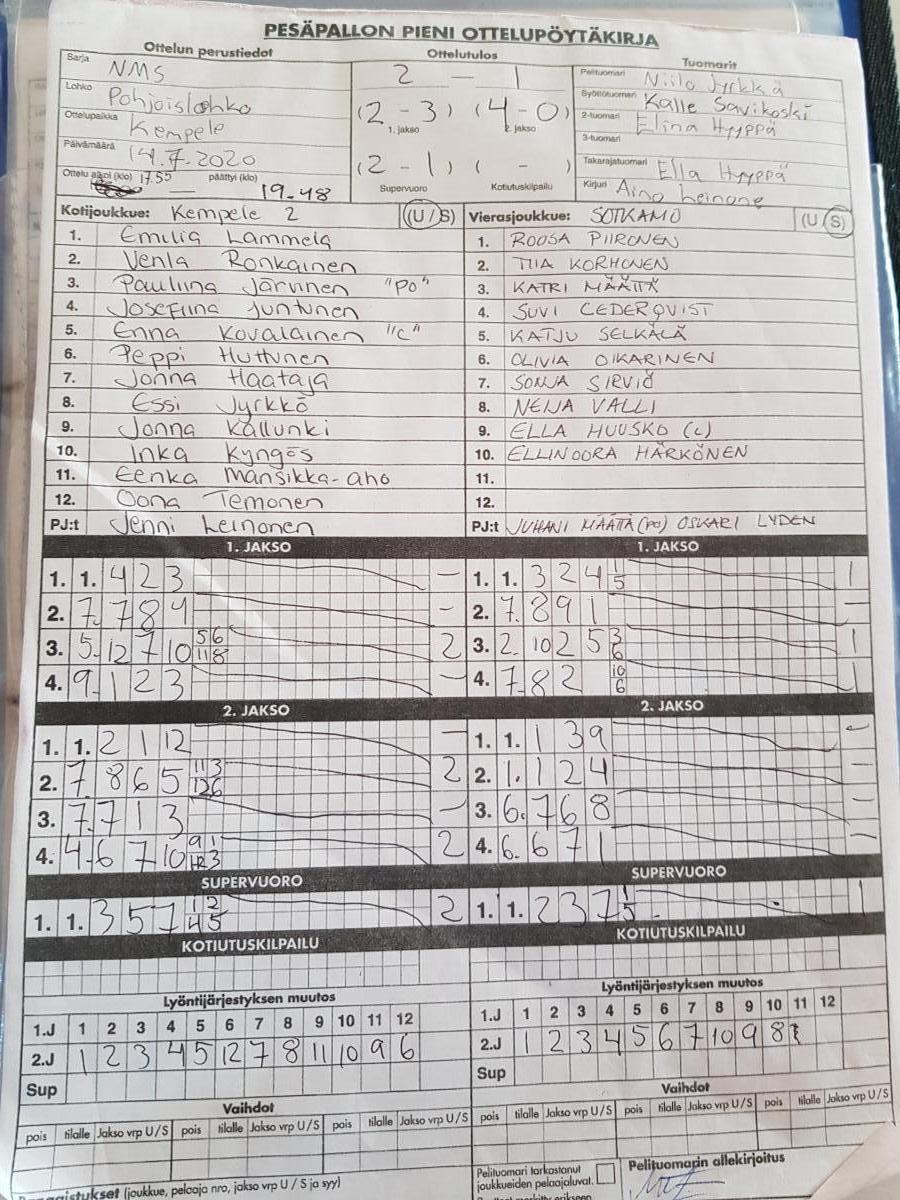 PESÄPALLON PIENI OTTELUPÖYTÄKIRJA
Ottelun perustiedot
Sarja NMS
Lohko Pohjoislohko
Ottelupaikka Kempele
Päivämäärä 14.7.2020
Ottelu alkoi (klo) 17.55 — päättyi (klo) 19-48
Ottelutulos
2 — 1
(2 - 3) (4 - 0)
1. jakso 2. jakso
(2 - 1) ( - )
Supervuoro Kotiutuskilpailu
Tuomarit
Pelituomari Niilo Jyrkkä
Syöttötuomari Kalle Savikoski
2-tuomari Elina Hyyppä
3-tuomari
Takarajatuomari Ella Hyyppä
Kirjuri Aino Leinone
Kotijoukkue: Kempele 2 (U / S)
1. Emilia Lammela
2. Venla Ronkainen
3. Pauliina Järvinen "PO"
4. Josefiina Juntunen
5. Enna Kovalainen "C"
6. Peppi Huttunen
7. Jonna Haataja
8. Essi Jyrkkö
9. Jonna Kallunki
10. Inka Kyngös
11. Eenka Mansikka-aho
12. Oona Temonen
PJ:t Jenni Leinonen
Vierasjoukkue: SOTKAMO (U / S)
1. ROOSA PIIRONEN
2. TIIA KORHONEN
3. KATRI MÄÄTTÄ
4. SUVI CEDERQVIST
5. KATJU SELKÄLÄ
6. OLIVIA OIKARINEN
7. SONJA SIRVIÖ
8. NEIJA VALLI
9. ELLA HUUSKO (c)
10. ELLINOORA HÄRKÖNEN
11.
12.
PJ:t JUHANI MÄÄTTÄ (PO) OSKARI LYDEN
1. JAKSO
1. 1. 4 2 3 —
2. 7. 7 8 9 -
3. 5. 12 7 10 5 6 11 8 2
4. 9. 1 2 3 —
1. JAKSO
1. 1. 3 2 4 1 5 1
2. 7. 8 9 1 —
3. 2. 10 2 5 3 6 1
4. 7. 8 2 10 6 1
2. JAKSO
1. 1. 2 1 12 —
2. 7. 8 6 5 11 3 12 6 2
3. 7. 7 1 3 —
4. 4. 6 7 10 9 1 12 3 2
2. JAKSO
1. 1. 1 3 9 —
2. 1. 1 2 4 —
3. 6. 7 6 8 —
4. 6. 6 7 1 —
SUPERVUORO
1. 1. 3 5 7 1 2 4 5 2
SUPERVUORO
1. 1. 2 3 7 1 5 1
KOTIUTUSKILPAILU
KOTIUTUSKILPAILU
Lyöntijärjestyksen muutos
1.J 1 2 3 4 5 6 7 8 9 10 11 12
2.J 1 2 3 4 5 12 7 8 11 10 9 6
Sup
Lyöntijärjestyksen muutos
1.J 1 2 3 4 5 6 7 8 9 10 11 12
2.J 1 2 3 4 5 6 7 10 9 8
Sup
Vaihdot
pois tilalle Jakso vrp U / S pois tilalle Jakso vrp U / S pois tilalle Jakso vrp U / S
Vaihdot
pois tilalle Jakso vrp U / S pois tilalle Jakso vrp U / S pois tilalle Jakso vrp U / S
(joukkue, pelaaja nro, jakso vrp U / S ja syy)
Pelituomari tarkastanut
joukkueiden pelaajaluvat.
Pelituomarin allekirjoitus